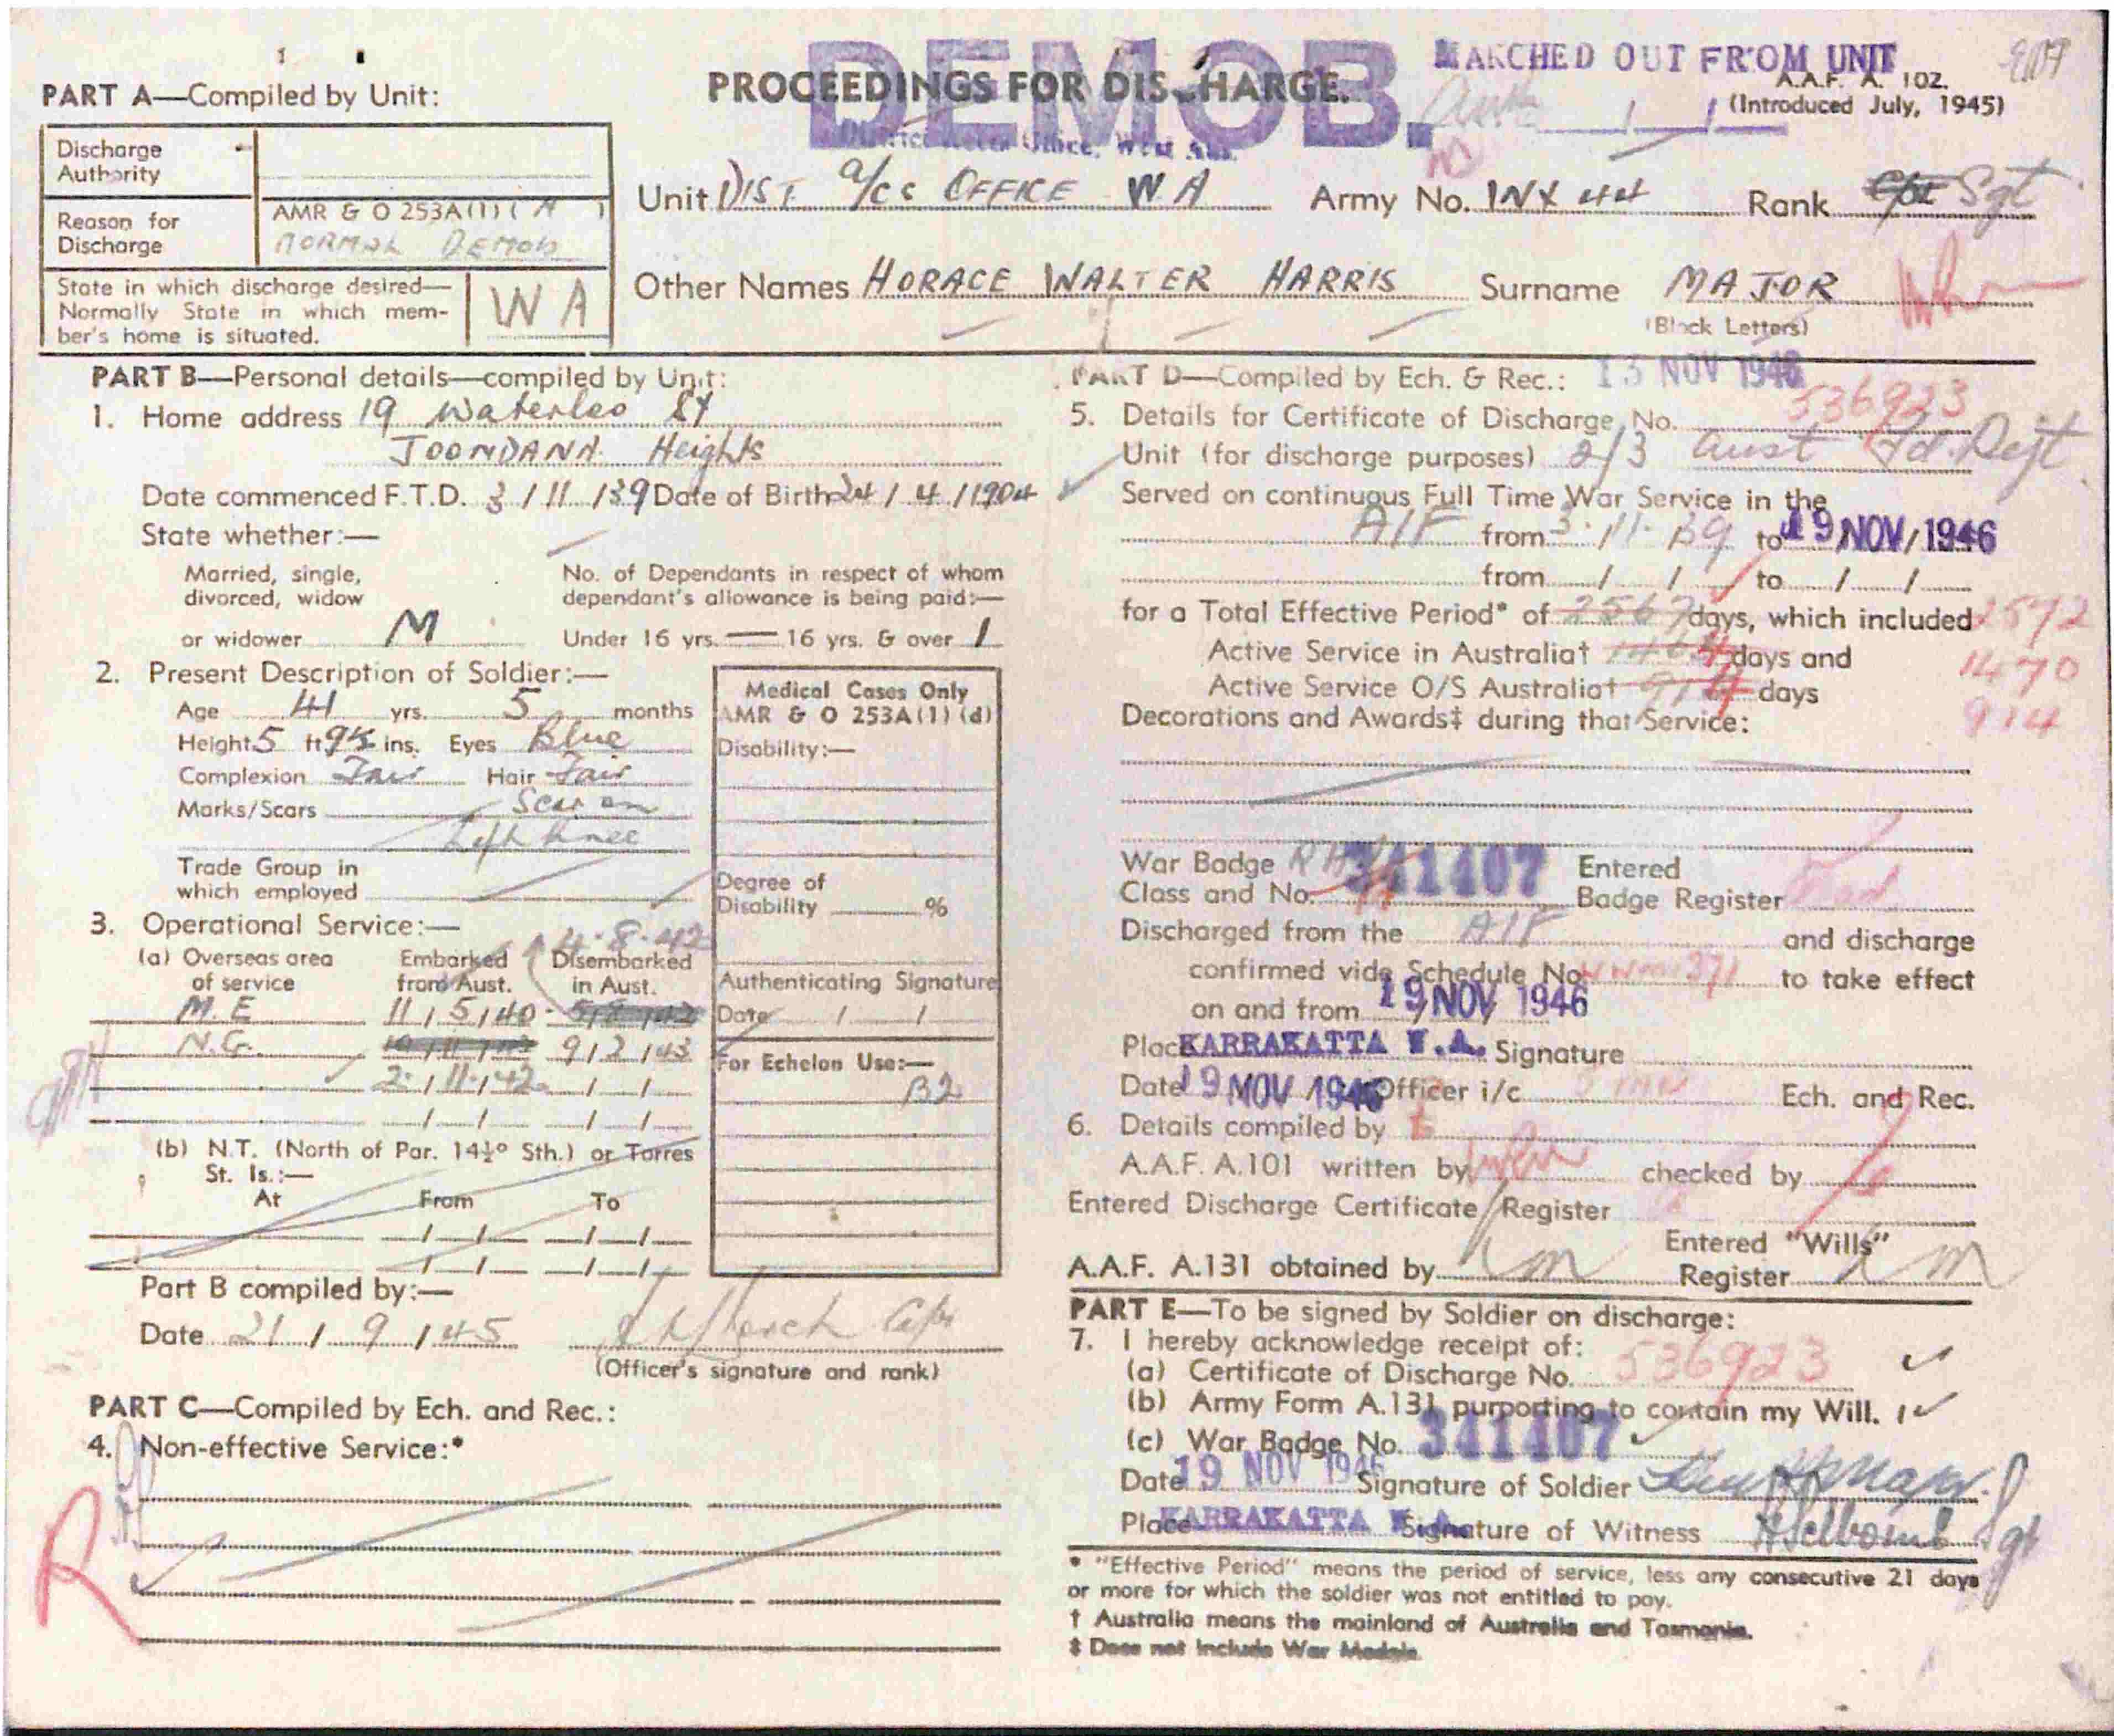 DEMOB.
MARCHED OUT FROM UNIT
PART A—Compiled by Unit:
PROCEEDINGS FOR DISCHARGE.
A.A.F. A. 102.
(Introduced July, 1945)
Discharge
Authority
Reason for
Discharge
AMR & O 253A(1) ( A )
NORMAL DEMOB
State in which discharge desired—
Normally State in which mem-
ber's home is situated.
WA
Unit DIST a/cs OFFICE WA Army No. WX 44 Rank Cpl Sgt
Other Names HORACE WALTER HARRIS Surname MAJOR
(Block Letters)
PART B—Personal details—compiled by Unit:
1. Home address 19 Waterloo St
JOONDANNA Heights
Date commenced F.T.D. 3/11/39 Date of Birth 24/4/1904
State whether:—
Married, single,
divorced, widow
or widower M
No. of Dependants in respect of whom
dependant's allowance is being paid:—
Under 16 yrs. — 16 yrs. & over 1
2. Present Description of Soldier:—
Age 41 yrs. 5 months
Height 5 ft 9½ ins. Eyes Blue
Complexion Fair Hair Fair
Marks/Scars Scar on
Left knee
Trade Group in
which employed
Medical Cases Only
AMR & O 253A(1) (d)
Disability:—
Degree of
Disability %
Authenticating Signature
Date / /
For Echelon Use:—
B2
3. Operational Service:—
(a) Overseas area
of service
Embarked
from Aust.
4.8.42
Disembarked
in Aust.
M.E 11/5/40 5/8/42
N.G. 9/2/43
2/11/42 / /
/ / / /
(b) N.T. (North of Par. 14½° Sth.) or Torres
St. Is.:—
At From To
/ / / /
/ / / /
Part B compiled by:—
Date 21/9/45
(Officer's signature and rank)
PART C—Compiled by Ech. and Rec.:
4. Non-effective Service:*
R
PART D—Compiled by Ech. & Rec.: 13 NOV 1946
5. Details for Certificate of Discharge No. 536923
Unit (for discharge purposes) 2/3 Aust Fd. Regt
Served on continuous Full Time War Service in the
AIF from 3.11.39 to 19 NOV 1946
from / / to / /
for a Total Effective Period* of 2567 days, which included 2572
Active Service in Australia† days and 1470
Active Service O/S Australia† 914 days 914
Decorations and Awards‡ during that Service:
War Badge
Class and No. 341407
Entered
Badge Register
Discharged from the AIF and discharge
confirmed vide Schedule No. to take effect
on and from 19 NOV 1946
Place KARRAKATTA W.A. Signature
Date 19 NOV 1946 Officer i/c Ech. and Rec.
6. Details compiled by
A.A.F. A.101 written by checked by
Entered Discharge Certificate Register
A.A.F. A.131 obtained by
Entered "Wills"
Register
PART E—To be signed by Soldier on discharge:
7. I hereby acknowledge receipt of:
(a) Certificate of Discharge No. 536923
(b) Army Form A.131 purporting to contain my Will.
(c) War Badge No. 341407
Date 19 NOV 1946 Signature of Soldier
Place KARRAKATTA W.A. Signature of Witness Sgt
* "Effective Period" means the period of service, less any consecutive 21 days
or more for which the soldier was not entitled to pay.
† Australia means the mainland of Australia and Tasmania.
‡ Does not include War Medals.